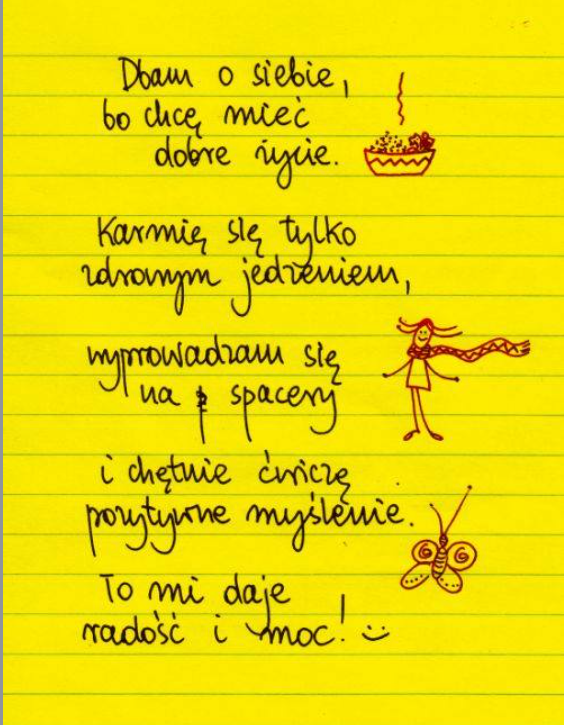 Dbam o siebie,
bo chcę mieć
dobre życie.
Karmię się tylko
zdrowym jedzeniem,
wyprowadzam się
na spacery
i chętnie ćwiczę
pozytywne myślenie.
To mi daje
radość i moc! :)